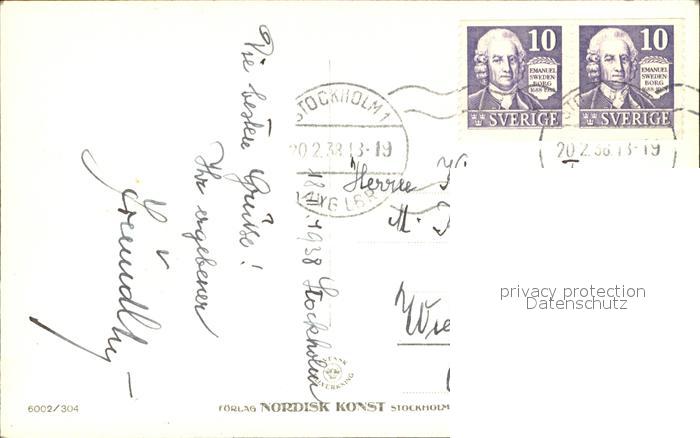 Die besten Grüße!
Ihr ergebener
18.II.1938 Stockholm
10
EMANUEL
SWEDEN
BORG
1688-1938
SVERIGE
10
EMANUEL
SWEDEN
BORG
1688-1938
SVERIGE
STOCKHOLM 1
20.2.38.13-19
20.2.38.13-19
Herrn
M.
Wie
privacy protection
Datenschutz
SVENSK
6002/304
FÖRLAG NORDISK KONST STOCKHOLM